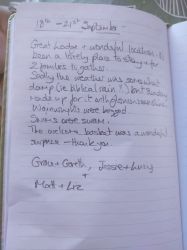 18th - 21st September -
Great Lodge + wonderful location. It's
been a lovely place to stay for
2 families together.
Sadly the weather was somewhat
damp (ie biblical rain!) but Sunday
made up for it with glorious sunshine.
were beyond
Smores were swam.
The welcome basket was a wonderful
surprise - thank you.
Grace + Gareth, Jessie + Lucy
+
Matt + Liz